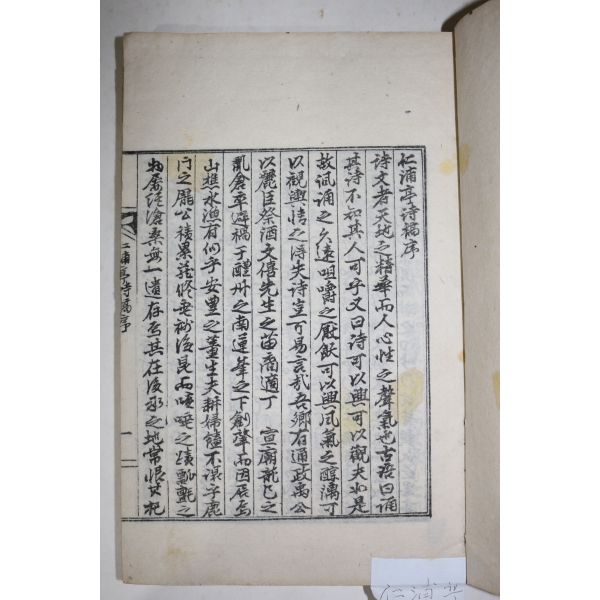 仁浦亭詩稿序
詩文者天地之精華而人心性之聲氣也古語曰誦
其詩不知其人可乎又曰詩可以興可以觀夫如是
故諷誦之久遠咀嚼之厭飫可以興風氣之醇漓可
以觀輿情之得失詩豈可易言哉吾鄕有通政禹公
以麗臣祭酒文僖先生之苗裔適丁 宣廟龍巳之
亂倉卒避禍于醴州之南蓮峯之下創肇而因居焉
山樵水漁有似乎安豊之董生夫耕婦饁不混乎鹿
門之龐公積累 修 後昆而 之 之
物屢經滄桑無一遺存焉其在後承之地常恨其杞
仁浦亭詩稿序
一
仁浦亭